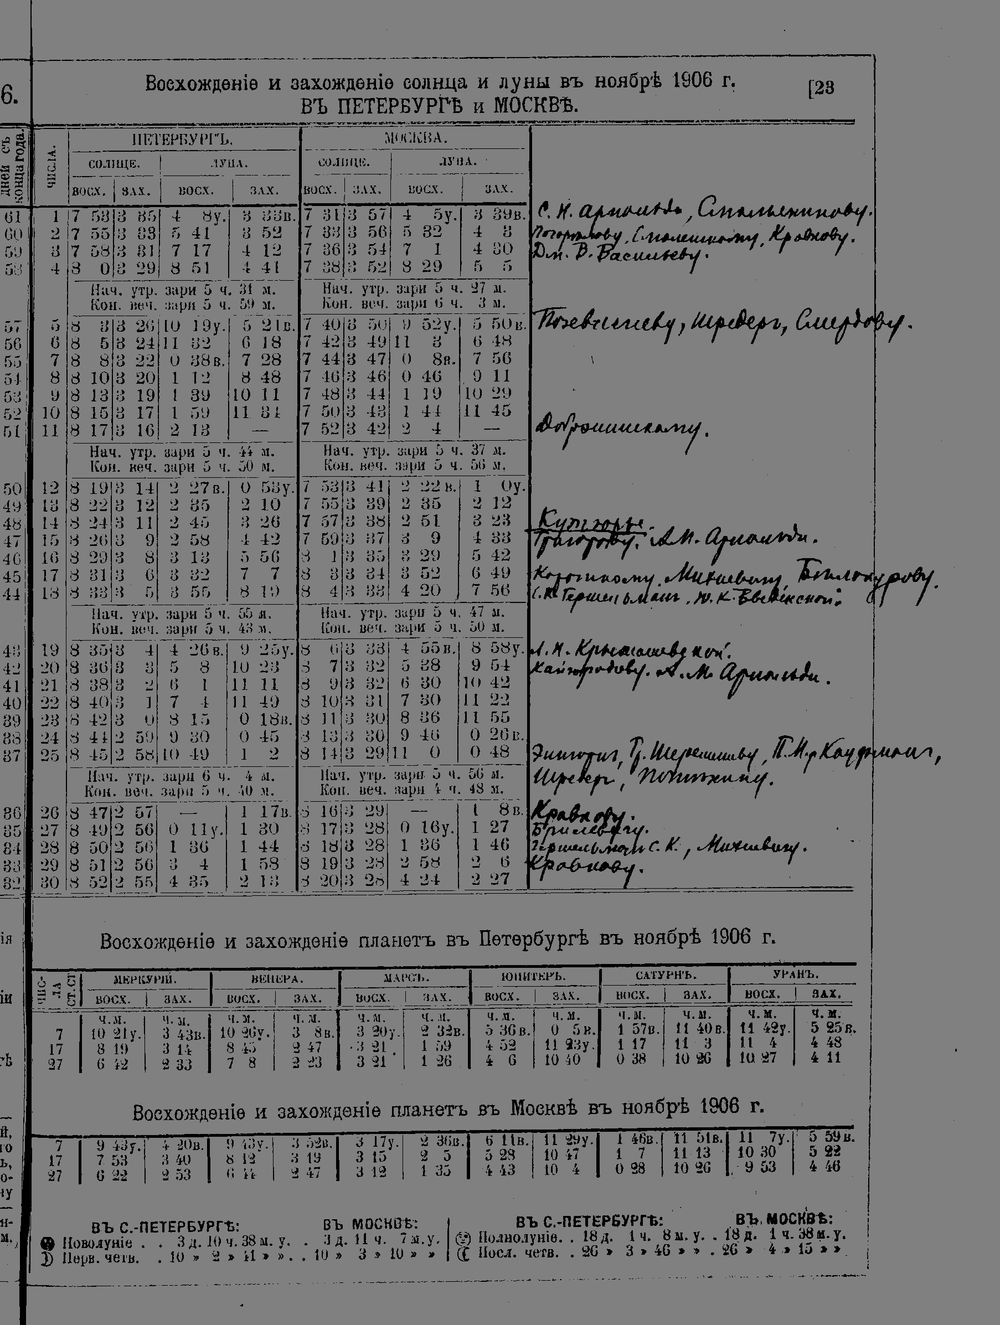 6.
Восхожденіе и захожденіе солнца и луны въ ноябрѣ 1906 г.
[23
ВЪ ПЕТЕРБУРГѢ и МОСКВѢ.
дней съ конца года.
ЧИСЛА.
ПЕТЕРБУРГЪ. МОСКВА.
СОЛНЦЕ. ЛУНА. СОЛНЦЕ. ЛУНА.
ВОСХ. ЗАХ. ВОСХ. ЗАХ. ВОСХ. ЗАХ. ВОСХ. ЗАХ.
61 1 7 53 3 35 4 8у. 3 33в. 7 31 3 57 4 5у. 3 39в. С. И. Арнольди,
60 2 7 55 3 33 5 41 3 52 7 33 3 56 5 32 4 3 Кравкову.
59 3 7 58 3 31 7 17 4 12 7 36 3 54 7 1 4 30 Дм. В. Васильеву.
58 4 8 0 3 29 8 51 4 41 7 38 3 52 8 29 5 5
Нач. утр. зари 5 ч. 31 м. Нач. утр. зари 5 ч. 27 м.
Кон. веч. зари 5 ч. 59 м. Кон. веч. зари 6 ч. 3 м.
57 5 8 3 3 26 10 19у. 5 21в. 7 40 3 50 9 52у. 5 50в. Шредеръ,
56 6 8 5 3 24 11 32 6 18 7 42 3 49 11 3 6 48
55 7 8 8 3 22 0 38в. 7 28 7 44 3 47 0 8в. 7 56
54 8 8 10 3 20 1 12 8 48 7 46 3 46 0 46 9 11
53 9 8 13 3 19 1 39 10 11 7 48 3 44 1 19 10 29
52 10 8 15 3 17 1 59 11 34 7 50 3 43 1 44 11 45
51 11 8 17 3 16 2 13 — 7 52 3 42 2 4 —
Нач. утр. зари 5 ч. 44 м. Нач. утр. зари 5 ч. 37 м.
Кон. веч. зари 5 ч. 50 м. Кон. веч. зари 5 ч. 56 м.
50 12 8 19 3 14 2 27в. 0 53у. 7 53 3 41 2 22в. 1 0у.
49 13 8 22 3 12 2 35 2 10 7 55 3 39 2 35 2 12
48 14 8 24 3 11 2 45 3 26 7 57 3 38 2 51 3 23
47 15 8 26 3 9 2 58 4 42 7 59 3 37 3 9 4 33 А.М. Арнольди.
46 16 8 29 3 8 3 13 5 56 8 1 3 35 3 29 5 42
45 17 8 31 3 6 3 32 7 7 8 3 3 34 3 52 6 49 Короткому, Михневичу, Бѣлокурову.
44 18 8 33 3 5 3 55 8 19 8 4 3 33 4 20 7 56 С.К. Гершельманъ, Ю.К. Введенской.
Нач. утр. зари 5 ч. 55 м. Нач. утр. зари 5 ч. 47 м.
Кон. веч. зари 5 ч. 43 м. Кон. веч. зари 5 ч. 50 м.
43 19 8 35 3 4 4 26в. 9 25у. 8 6 3 33 4 55в. 8 58у.
42 20 8 36 3 3 5 8 10 23 8 7 3 32 5 38 9 54 Кайгородову. А. М. Арнольди.
41 21 8 38 3 2 6 1 11 11 8 9 3 32 6 30 10 42
40 22 8 40 3 1 7 4 11 49 8 10 3 31 7 30 11 22
39 23 8 42 3 0 8 15 0 18в. 8 11 3 30 8 36 11 55
38 24 8 44 2 59 9 30 0 45 8 13 3 30 9 46 0 26в.
37 25 8 45 2 58 10 49 1 2 8 14 3 29 11 0 0 48 Гр. Шереметеву, П.М. Кауфманъ,
Нач. утр. зари 6 ч. 4 м. Нач. утр. зари 5 ч. 56 м. Шредеръ,
Кон. веч. зари 5 ч. 40 м. Кон. веч. зари 4 ч. 48 м.
36 26 8 47 2 57 — 1 17в. 8 16 3 29 — 1 8в. Кравкову.
35 27 8 49 2 56 0 11у. 1 30 8 17 3 28 0 16у. 1 27 Брилевичу.
34 28 8 50 2 56 1 36 1 44 8 18 3 28 1 36 1 46 Гершельманъ С. К., Михневичу.
33 29 8 51 2 56 3 4 1 58 8 19 3 28 2 58 2 6 Кравкову.
32 30 8 52 2 55 4 35 2 13 8 20 3 28 4 24 2 27
Восхожденіе и захожденіе планетъ въ Петербургѣ въ ноябрѣ 1906 г.
ЧИСЛА СТ.СТ
МЕРКУРІЙ. ВЕНЕРА. МАРСЪ. ЮПИТЕРЪ. САТУРНЪ. УРАНЪ.
ВОСХ. ЗАХ. ВОСХ. ЗАХ. ВОСХ. ЗАХ. ВОСХ. ЗАХ. ВОСХ. ЗАХ. ВОСХ. ЗАХ.
ч.м. ч.м. ч.м. ч.м. ч.м. ч.м. ч.м. ч.м. ч.м. ч.м. ч.м. ч.м.
7 10 21у. 3 43в. 10 26у. 3 8в. 3 20у. 2 32в. 5 36в. 0 5в. 1 57в. 11 40в. 11 42у. 5 25в.
17 8 19 3 14 8 45 2 47 3 21 1 59 4 52 11 23у. 1 17 11 3 11 4 4 48
27 6 42 2 33 7 8 2 23 3 21 1 26 4 6 10 40 0 38 10 26 10 27 4 11
Восхожденіе и захожденіе планетъ въ Москвѣ въ ноябрѣ 1906 г.
7 9 43у. 4 20в. 9 43у. 3 52в. 3 17у. 2 36в. 6 11в. 11 29у. 1 46в. 11 51в. 11 7у. 5 59в.
17 7 53 3 40 8 12 3 19 3 15 2 5 5 28 10 47 1 7 11 13 10 30 5 22
27 6 22 2 53 6 44 2 47 3 12 1 35 4 43 10 4 0 28 10 26 9 53 4 46
ВЪ С.-ПЕТЕРБУРГѢ: ВЪ МОСКВѢ: ВЪ С.-ПЕТЕРБУРГѢ: ВЪ МОСКВѢ:
Новолуніе . . 3 д. 10 ч. 38 м. у. . 3 д. 11 ч. 7 м. у. Полнолуніе . . 18 д. 1 ч. 8 м. у. . 18 д. 1 ч. 38 м. у.
Перв. четв. . 10 » 2 » 41 » » . . 10 » 3 » 10 » » Посл. четв. . 26 » 3 » 46 » » . 26 » 4 » 15 » »